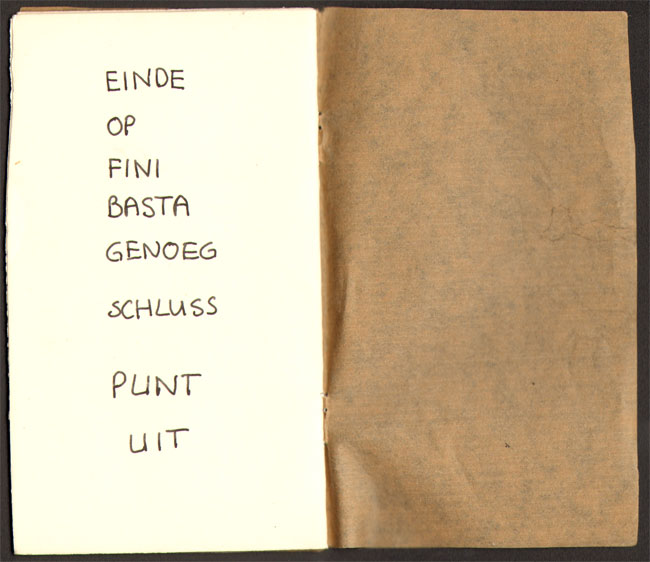 EINDE
OP
FINI
BASTA
GENOEG
SCHLUSS
PUNT
UIT